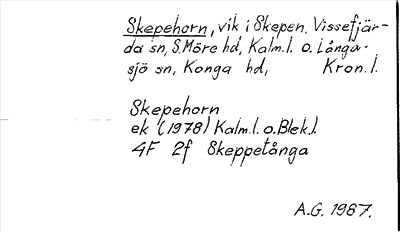 Skepehorn, vik i Skepen. Vissefjär-
da sn, S. Möre hd, Kalm. l. o. Långa-
sjö sn, Konga hd, Kron. l.
Skepehorn
ek (1978) Kalm. l. o. Blek. l.
4F 2f Skeppetånga
A.G. 1987.